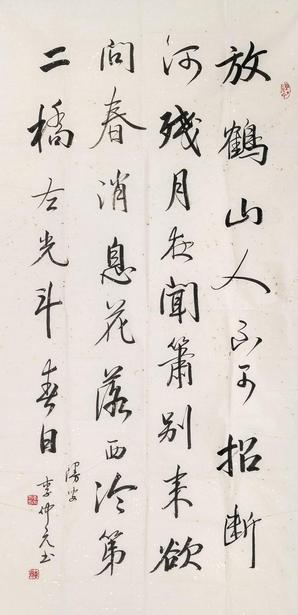 放鹤山人不可招断
河残月夜闻箫别来欲
问春消息花落西泠第
二桥左光斗春日
李仲元书